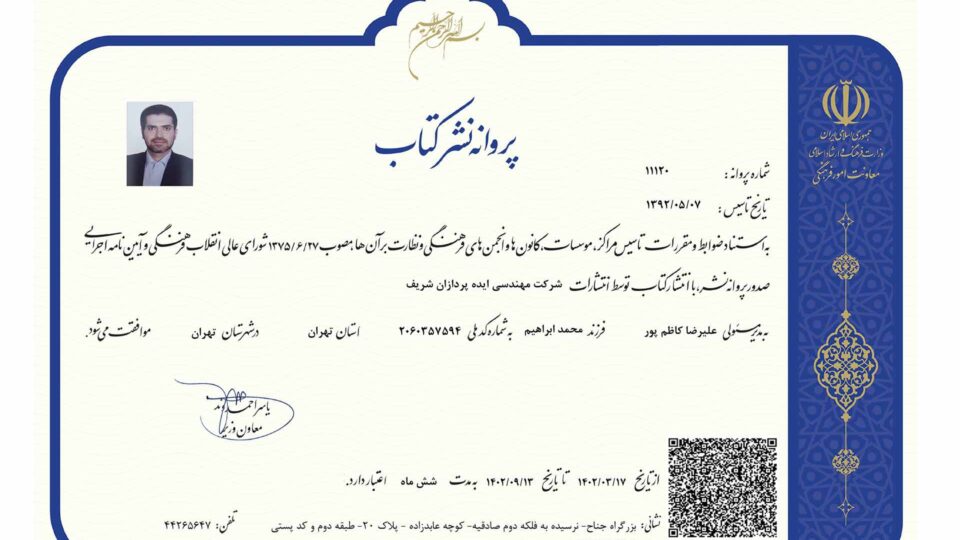 بسم الله الرحمن الرحیم
جمهوری اسلامی ایران
وزارت فرهنگ و ارشاد اسلامی
معاونت امور فرهنگی
پروانه نشر کتاب
شماره پروانه: ۱۱۱۲۰
تاریخ تاسیس: ۱۳۹۲/۰۵/۰۷
به استناد ضوابط و مقررات تاسیس مراکز، موسسات، کانون ها و انجمن های فرهنگی و نظارت بر آن ها مصوب ۱۳۷۵/۶/۲۷ شورای عالی انقلاب فرهنگی و آیین نامه اجرایی
صدور پروانه نشر، با انتشار کتاب توسط انتشارات شرکت مهندسی ایده پردازان شریف
به مدیر مسئولی علیرضا کاظم پور فرزند محمد ابراهیم به شماره کد ملی ۲۰۶۰۳۵۷۵۹۴ استان تهران در شهرستان تهران موافقت می شود.
یاسر احمدوند
معاون وزیر
از تاریخ ۱۴۰۲/۰۳/۱۷ تا تاریخ ۱۴۰۲/۰۹/۱۳ به مدت شش ماه اعتبار دارد.
نشانی: بزرگراه جناح- نرسیده به فلکه دوم صادقیه- کوچه عابدزاده - پلاک ۲۰- طبقه دوم و کد پستی تلفن: ۴۴۲۶۵۶۴۷